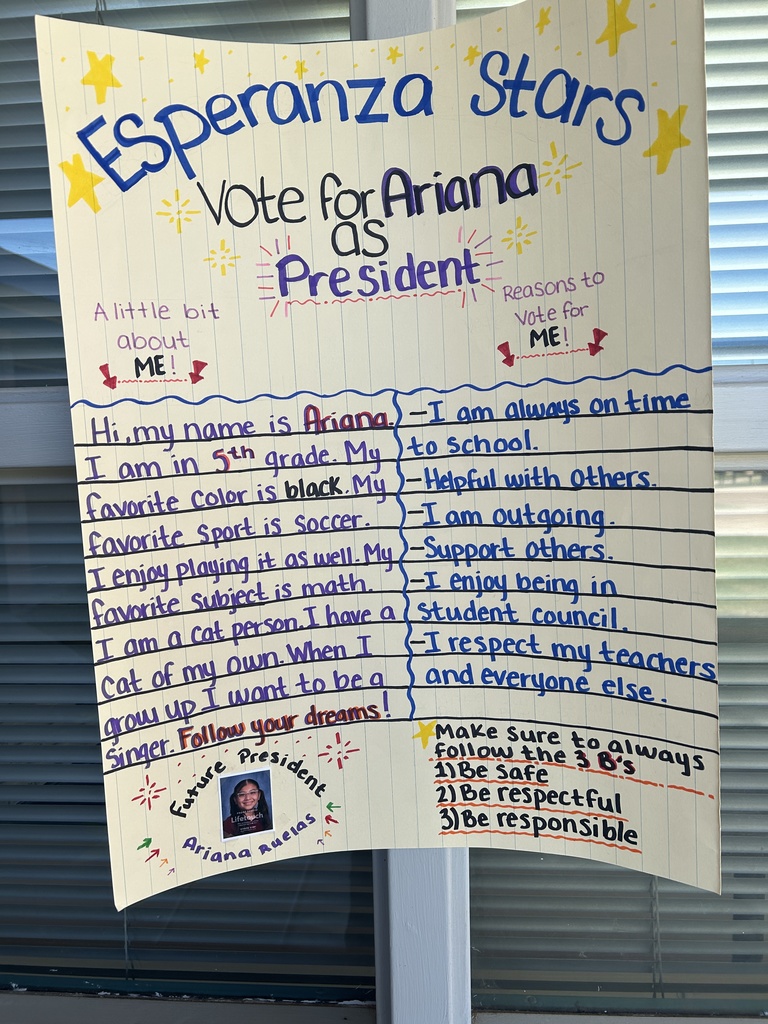 Esperanza Stars
Vote for Ariana
as
President
A little bit
about
ME!
Reasons to
Vote for
ME!
Hi, my name is Ariana.
I am in 5th grade. My
favorite color is black. My
favorite sport is soccer.
I enjoy playing it as well. My
favorite subject is math.
I am a cat person. I have a
cat of my own. When I
grow up I want to be a
singer. Follow your dreams!
-I am always on time
to school.
-Helpful with others.
-I am outgoing.
-Support others.
-I enjoy being in
student council.
-I respect my teachers
and everyone else.
Future President
Lifetouch
Ariana Ruelas
Make sure to always
follow the 3 B's
1) Be safe
2) Be respectful
3) Be responsible